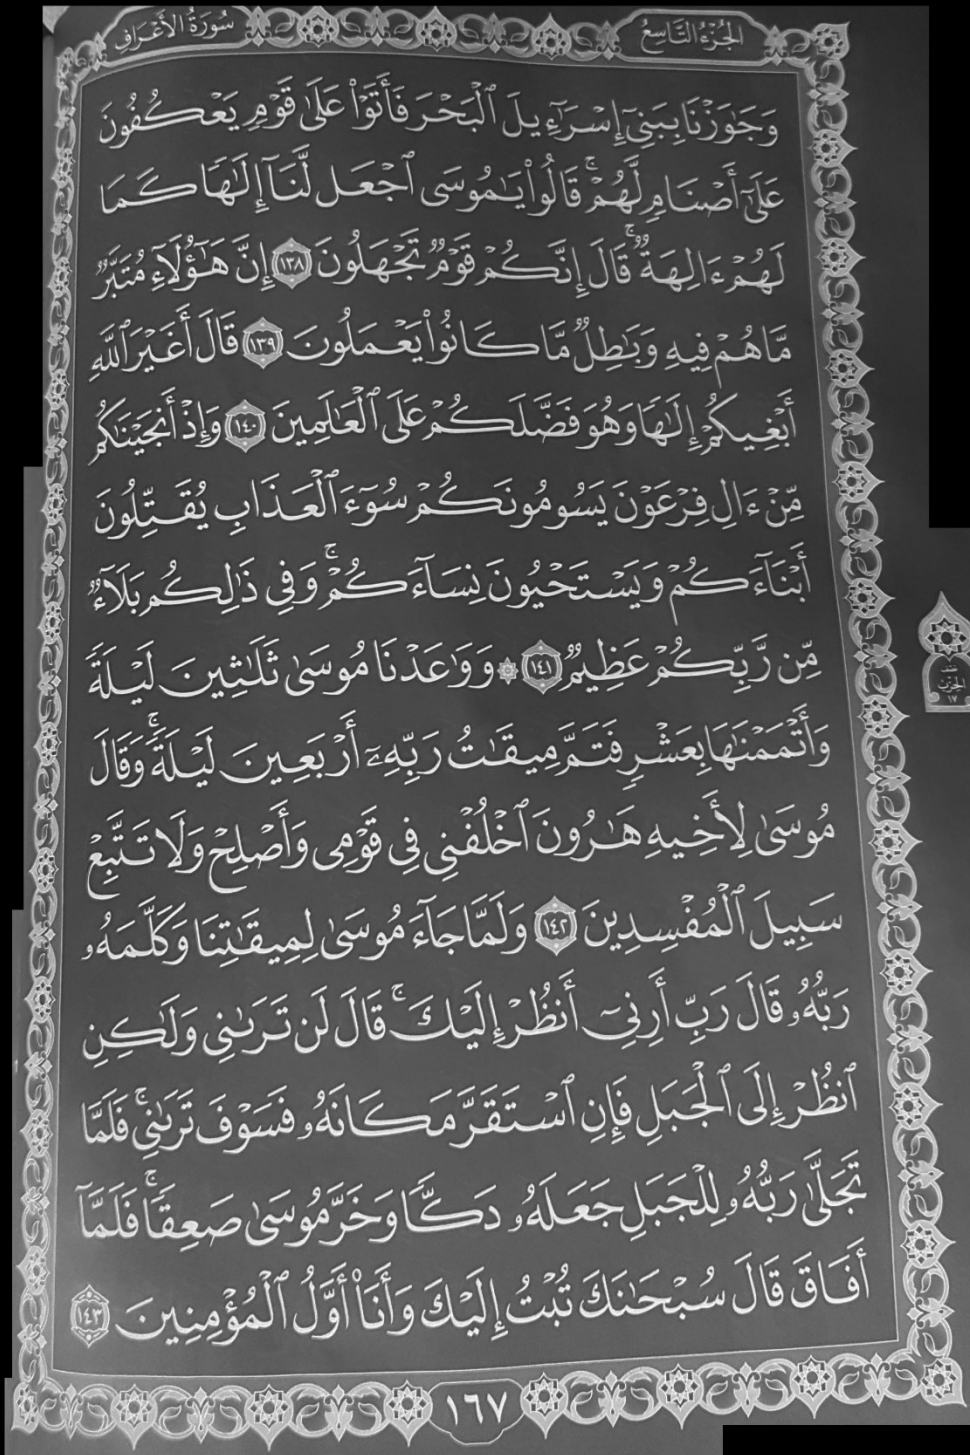 الجزء التاسع
سورة الأعراف
وَجَٰوَزْنَا بِبَنِىٓ إِسْرَٰٓءِيلَ ٱلْبَحْرَ فَأَتَوْا۟ عَلَىٰ قَوْمٍ يَعْكُفُونَ
عَلَىٰٓ أَصْنَامٍ لَّهُمْ ۚ قَالُوا۟ يَٰمُوسَى ٱجْعَل لَّنَآ إِلَٰهًا كَمَا
لَهُمْ ءَالِهَةٌ ۚ قَالَ إِنَّكُمْ قَوْمٌ تَجْهَلُونَ ١٣٨ إِنَّ هَٰٓؤُلَآءِ مُتَبَّرٌ
مَّا هُمْ فِيهِ وَبَٰطِلٌ مَّا كَانُوا۟ يَعْمَلُونَ ١٣٩ قَالَ أَغَيْرَ ٱللَّهِ
أَبْغِيكُمْ إِلَٰهًا وَهُوَ فَضَّلَكُمْ عَلَى ٱلْعَٰلَمِينَ ١٤٠ وَإِذْ أَنجَيْنَٰكُم
مِّنْ ءَالِ فِرْعَوْنَ يَسُومُونَكُمْ سُوٓءَ ٱلْعَذَابِ يُقَتِّلُونَ
أَبْنَآءَكُمْ وَيَسْتَحْيُونَ نِسَآءَكُمْ ۚ وَفِى ذَٰلِكُم بَلَآءٌ
مِّن رَّبِّكُمْ عَظِيمٌ ١٤١ ۞ وَوَٰعَدْنَا مُوسَىٰ ثَلَٰثِينَ لَيْلَةً
وَأَتْمَمْنَٰهَا بِعَشْرٍ فَتَمَّ مِيقَٰتُ رَبِّهِۦٓ أَرْبَعِينَ لَيْلَةً ۚ وَقَالَ
مُوسَىٰ لِأَخِيهِ هَٰرُونَ ٱخْلُفْنِى فِى قَوْمِى وَأَصْلِحْ وَلَا تَتَّبِعْ
سَبِيلَ ٱلْمُفْسِدِينَ ١٤٢ وَلَمَّا جَآءَ مُوسَىٰ لِمِيقَٰتِنَا وَكَلَّمَهُۥ
رَبُّهُۥ قَالَ رَبِّ أَرِنِىٓ أَنظُرْ إِلَيْكَ ۚ قَالَ لَن تَرَىٰنِى وَلَٰكِنِ
ٱنظُرْ إِلَى ٱلْجَبَلِ فَإِنِ ٱسْتَقَرَّ مَكَانَهُۥ فَسَوْفَ تَرَىٰنِى ۚ فَلَمَّا
تَجَلَّىٰ رَبُّهُۥ لِلْجَبَلِ جَعَلَهُۥ دَكًّا وَخَرَّ مُوسَىٰ صَعِقًا ۚ فَلَمَّآ
أَفَاقَ قَالَ سُبْحَٰنَكَ تُبْتُ إِلَيْكَ وَأَنَا۠ أَوَّلُ ٱلْمُؤْمِنِينَ ١٤٣
نصف
الحزب
١٧
١٦٧